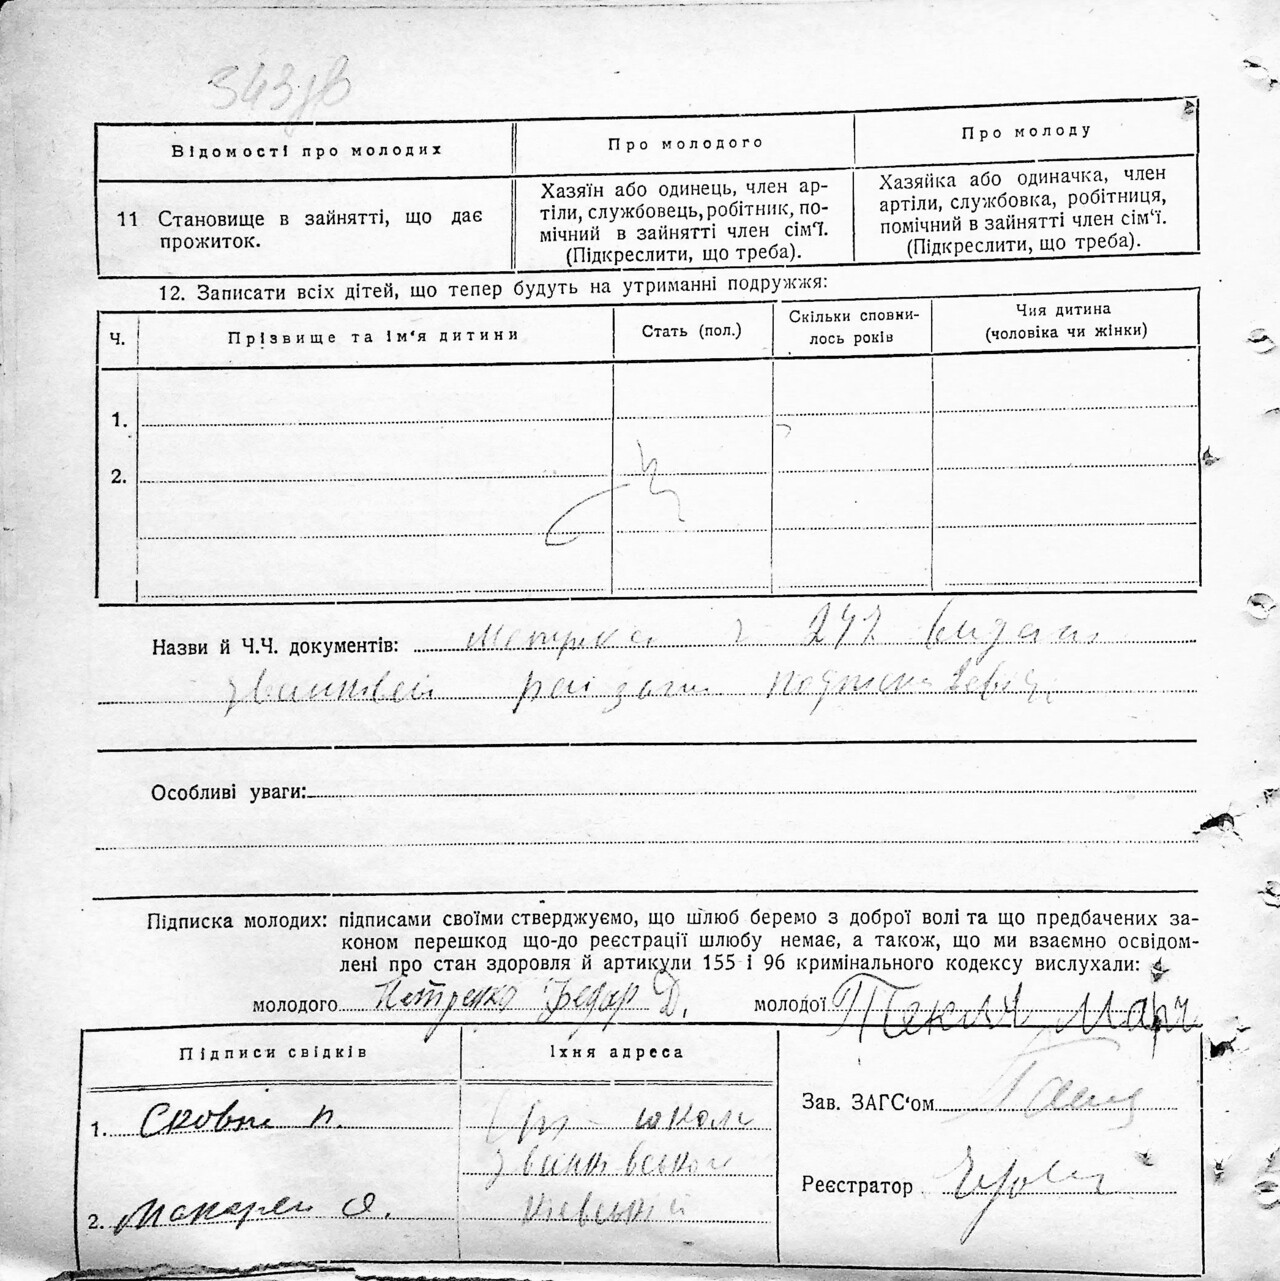 Відомості про молодих
Про молодого
Про молоду
11 Становище в зайнятті, що дає
прожиток.
Хазяїн або одинець, член ар-
тіли, службовець, робітник, по-
мічний в зайнятті член сім'ї.
(Підкреслити, що треба).
Хазяйка або одиначка, член
артіли, службовка, робітниця,
помічний в зайнятті член сім'ї.
(Підкреслити, що треба).
12. Записати всіх дітей, що тепер будуть на утриманні подружжя:
Ч.
Прізвище та ім'я дитини
Стать (пол.)
Скільки сповни-
лось років
Чия дитина
(чоловіка чи жінки)
1.
2.
Назви й Ч.Ч. документів: Метрика 247
Особливі уваги:
Підписка молодих: підписами своїми стверджуємо, що шлюб беремо з доброї волі та що предбачених за-
коном перешкод що-до реєстрації шлюбу немає, а також, що ми взаємно освідом-
лені про стан здоровля й артикули 155 і 96 кримінального кодексу вислухали:
молодого Петренко Федар Д. молодої Текля
Підписи свідків
Їхня адреса
1.
школи
2.
Зав. ЗАГС'ом
Реєстратор